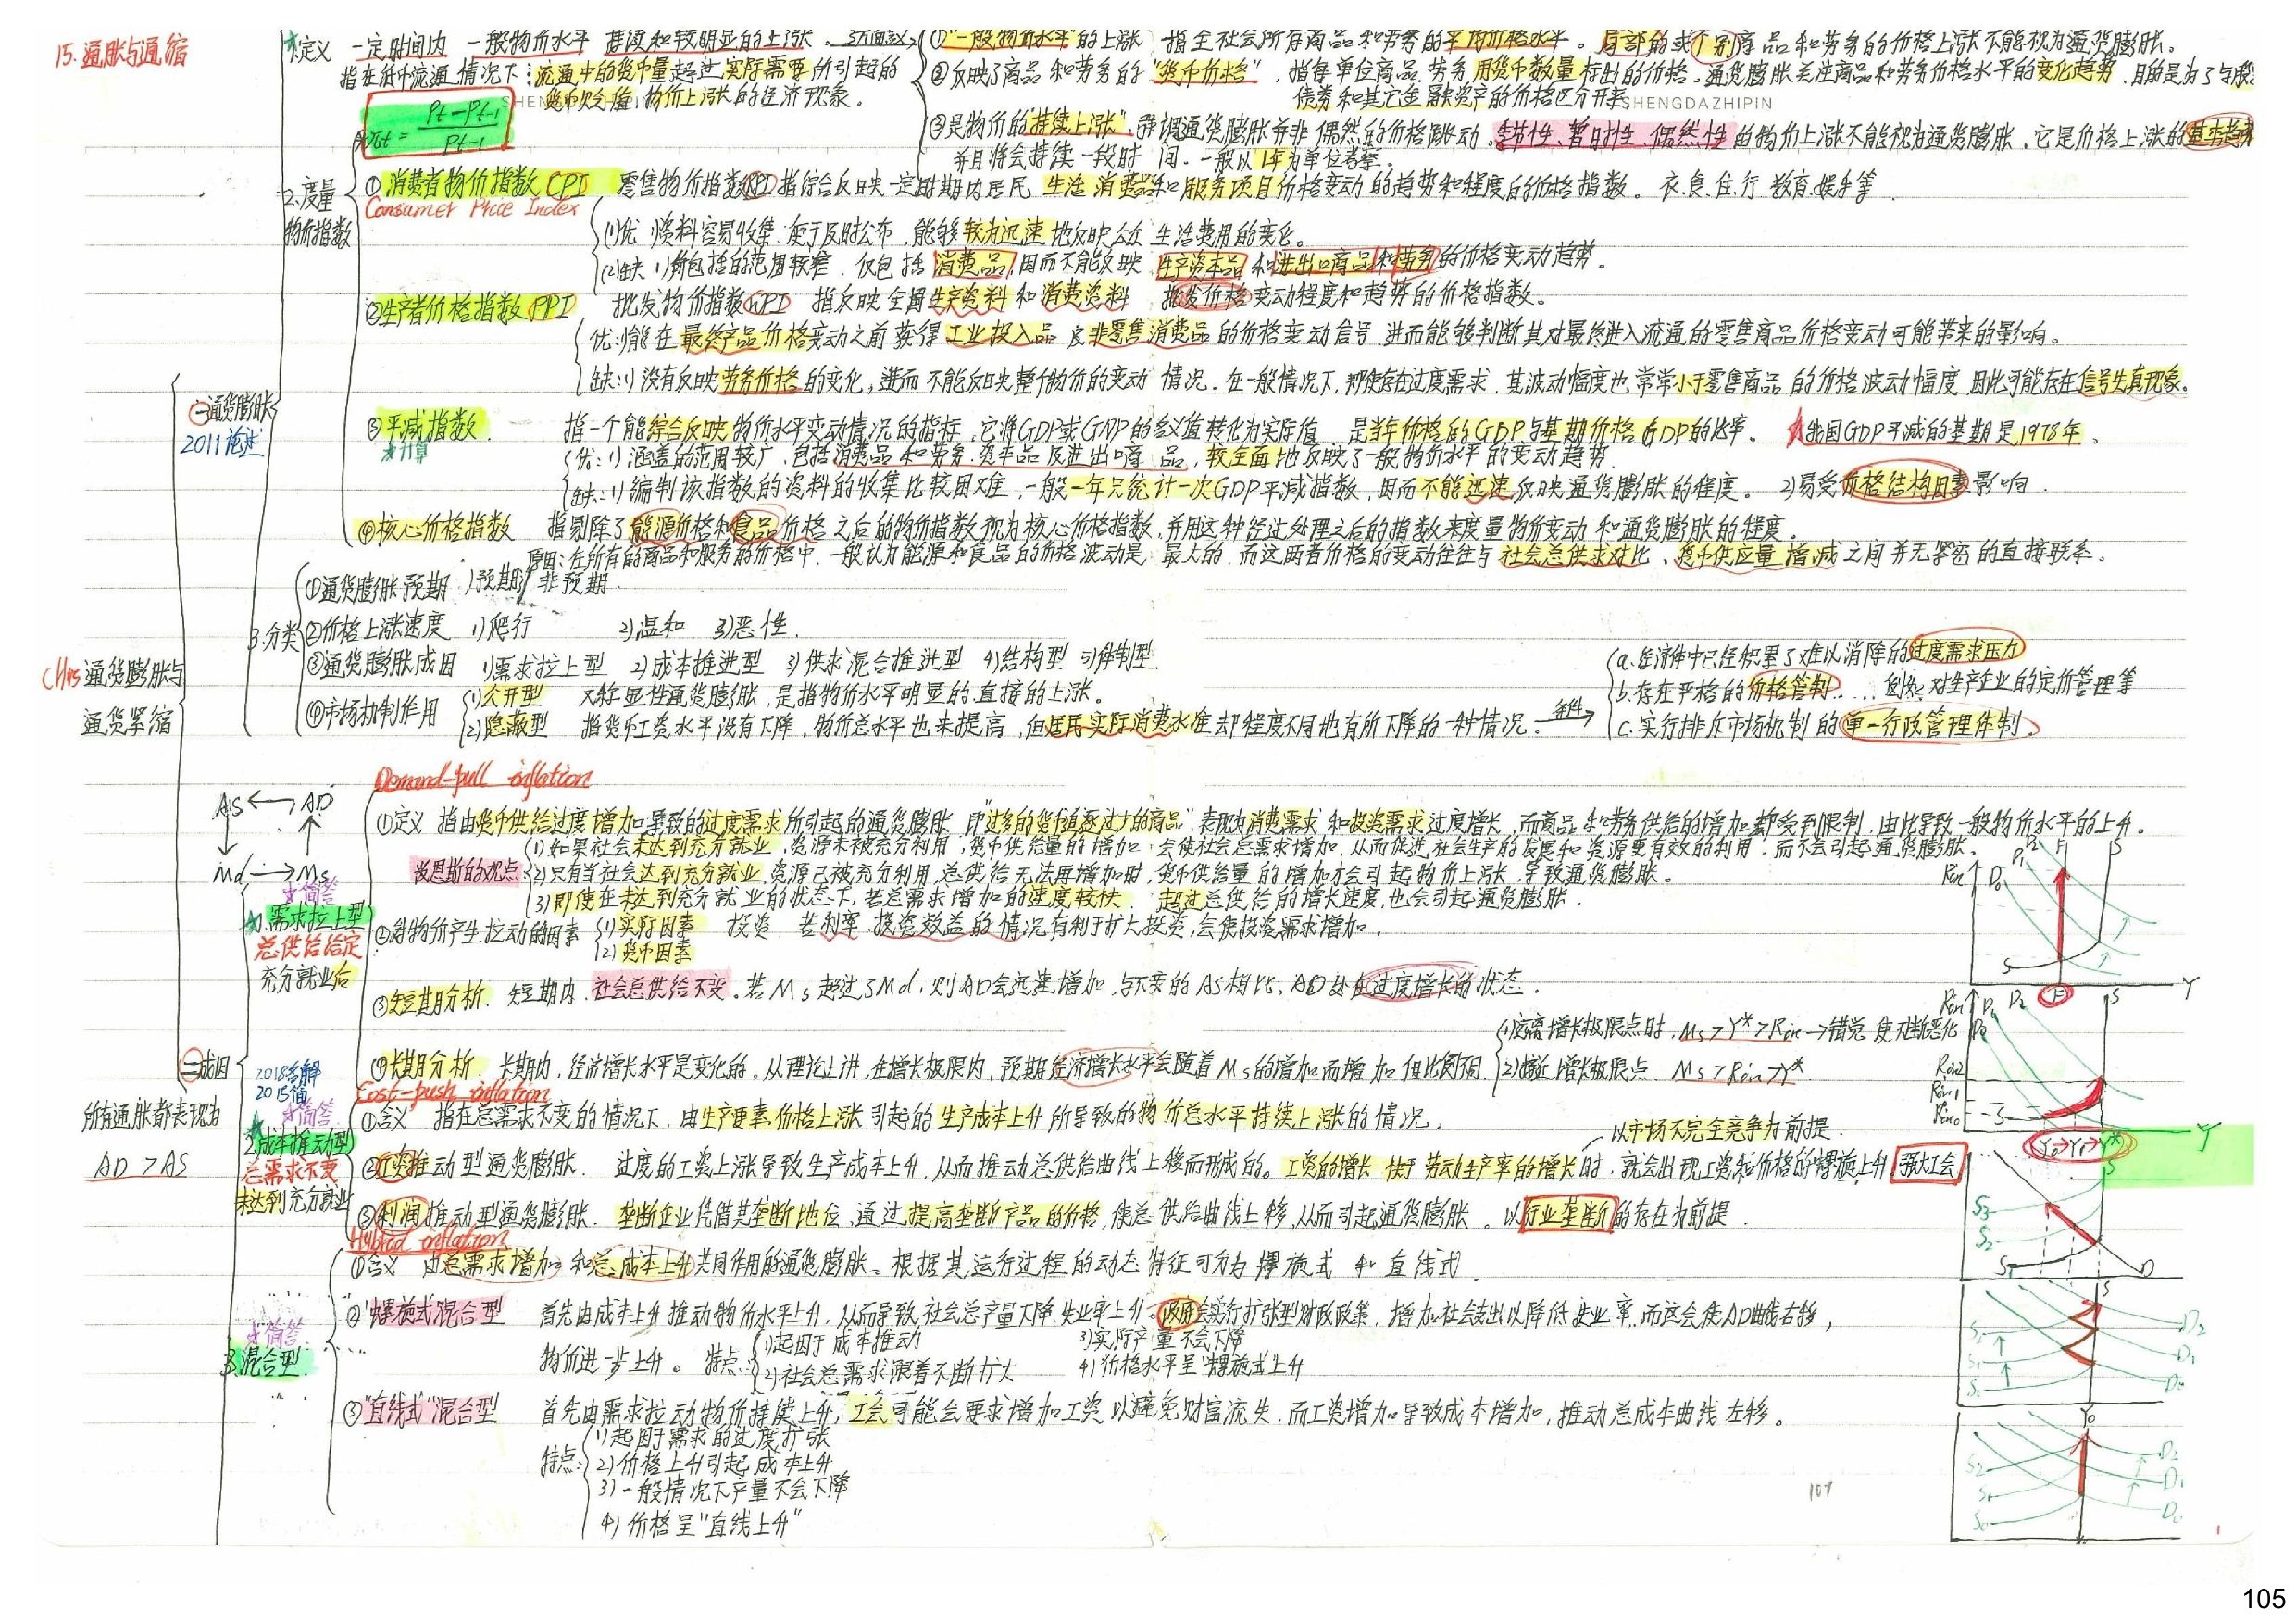 15.通胀与通缩
CH15 通货膨胀与
通货紧缩
一通货膨胀
2011论述
1.定义 一定时间内 一般物价水平 持续和较明显的上涨。3方面含义
指在纸币流通情况下:流通中的货币量超过实际需要所引起的
货币贬值 物价上涨的经济现象。
πt = Pt-Pt-1 / Pt-1
①"一般物价水平"的上涨 指全社会所有商品和劳务的平均价格水平。局部的或个别商品和劳务的价格上涨不能视为通货膨胀。
②反映了商品和劳务的"货币价格",指每单位商品、劳务用货币数量标出的价格。通货膨胀关注商品和劳务价格水平的变化趋势,目的是为了与股
债券和其它金融资产的价格区分开来
SHENGDAZHIPIN SHENGDAZHIPIN
③是物价的"持续上涨",强调通货膨胀并非偶然的价格跳动。季节性、暂时性、偶然性的物价上涨不能视为通货膨胀,它是价格上涨的基本趋势
并且将会持续一段时间,一般以1年为单位考察。
2.度量
物价指数
①消费者物价指数CPI 零售物价指数RPI 指综合反映一定时期内居民 生活消费品和服务项目价格变动的趋势和程度的价格指数。衣、食、住、行、教育、娱乐等
Consumer Price Index
(1)优 资料容易收集、便于及时公布、能够较为迅速地反映公众 生活费用的变化。
(2)缺 1)所包括的范围较窄,仅包括消费品,因而不能反映 生产资本品和进出口商品和劳务的价格变动趋势。
②生产者价格指数PPI 批发物价指数WPI 指反映全国生产资料和消费资料 批发价格变动程度和趋势的价格指数。
优:1)能在最终产品价格变动之前获得工业投入品及非零售消费品的价格变动信号,进而能够判断其对最终进入流通的零售商品价格变动可能带来的影响。
缺:1)没有反映劳务价格的变化,进而不能反映整个物价的变动情况。在一般情况下,即使存在过度需求,其波动幅度也常常小于零售商品的价格波动幅度,因此可能存在信号失真现象。
③平减指数 指一个能综合反映物价水平变动情况的指标,它将GDP或GNP的名义值转化为实际值 是当年价格的GDP与基期价格GDP的比率。★我国GDP平减的基期是1978年。
★计算
优:1)涵盖的范围较广,包括消费品和劳务、资本品及进出口商品,较全面地反映了一般物价水平的变动趋势.
缺:1)编制该指数的资料的收集比较困难,一般一年只统计一次GDP平减指数,因而不能迅速反映通货膨胀的程度。2)易受价格结构因素影响.
④核心价格指数 指剔除了能源价格和食品价格之后的物价指数视为核心价格指数,并用这种经过处理之后的指数来度量物价变动和通货膨胀的程度。
原因:在所有的商品和服务的价格中,一般认为能源和食品的价格波动是最大的,而这两者价格的变动往往与社会总供求对比、货币供应量增减之间并无紧密的直接联系。
3.分类
①通货膨胀预期 1)预期 非预期.
②价格上涨速度 1)爬行 2)温和 3)恶性.
③通货膨胀成因 1)需求拉上型 2)成本推进型 3)供求混合推进型 4)结构型 5)体制型.
④市场机制作用 1)公开型 又称显性通货膨胀,是指物价水平明显的、直接的上涨。
2)隐蔽型 指货币工资水平没有下降,物价总水平也未提高,但居民实际消费水准却程度不同地有所下降的一种情况。条件
a.经济体中已经积累了难以消除的过度需求压力
b.存在严格的价格管制.... 例如 对生产企业的定价管理等
c.实行排斥市场机制的单一行政管理体制.
二成因
所有通胀都表现为
AD > AS
AS ← AD
Md → Ms
★简答
1.需求拉上型
总供给给定
充分就业后
Demand-pull inflation
①定义 指由货币供给过度增加导致的过度需求所引起的通货膨胀 即"过多的货币追逐过少的商品",表现为消费需求和投资需求过度增长,而商品和劳务供给的增加却受到限制,由此导致一般物价水平的上升。
凯恩斯的观点
(1)如果社会未达到充分就业,资源未被充分利用,货币供给量的增加,会使社会总需求增加,从而促进社会生产的发展和资源更有效的利用,而不会引起通货膨胀.
(2)只有当社会达到充分就业,资源已被充分利用,总供给无法再增加时,货币供给量的增加才会引起物价上涨,导致通货膨胀。
3)即使在未达到充分就业的状态下,若总需求增加的速度较快,超过总供给的增长速度,也会引起通货膨胀.
②对物价产生拉动的因素 1)实际因素 投资 若利率、投资效益的情况有利于扩大投资,会使投资需求增加.
2)货币因素
③短期分析. 短期内,社会总供给不变。若Ms超过了Md,则AD会迅速增加,与不变的AS相比,AD处在过度增长的状态.
④长期分析. 长期内,经济增长水平是变化的。从理论上讲,在增长极限内,预期经济增长水平会随着Ms的增加而增加 但比例不同.
1)远离增长极限点时,Ms>Y*>Pcn→错觉
2)接近增长极限点. Ms>Pcn>Y*.
2018名解
2015简
★简答
2.成本推动型
总需求不变
未达到充分就业
Cost-push inflation
①含义 指在总需求不变的情况下,由生产要素价格上涨引起的生产成本上升所导致的物价总水平持续上涨的情况.
以市场不完全竞争为前提.
②工资推动型通货膨胀. 过度的工资上涨导致生产成本上升,从而推动总供给曲线上移而形成的。工资的增长快于劳动生产率的增长时,就会出现工资和价格的螺旋上升. 强大工会
③利润推动型通货膨胀. 垄断企业凭借其垄断地位,通过提高垄断产品的价格,使总供给曲线上移,从而引起通货膨胀。以行业垄断的存在为前提.
★简答
3.混合型
Hybrid inflation
①含义 由总需求增加和总成本上升共同作用的通货膨胀。根据其运行过程的动态特征可分为 螺旋式 和 直线式.
②"螺旋式"混合型 首先由成本上升推动物价水平上升,从而导致社会总产量下降、失业率上升→政府会实行扩张型财政政策,增加社会支出以降低失业率.而这会使AD曲线右移,
物价进一步上升。特点:
1)起因于成本推动 3)实际产量不会下降
2)社会总需求跟着不断扩大 4)价格水平呈"螺旋式"上升
③"直线式"混合型 首先由需求拉动物价持续上升,工会可能会要求增加工资以避免财富流失,而工资增加导致成本增加,推动总成本曲线左移。
特点:
1)起因于需求的过度扩张
2)价格上升引起成本上升
3)一般情况下产量不会下降
4)价格呈"直线上升"
107
105